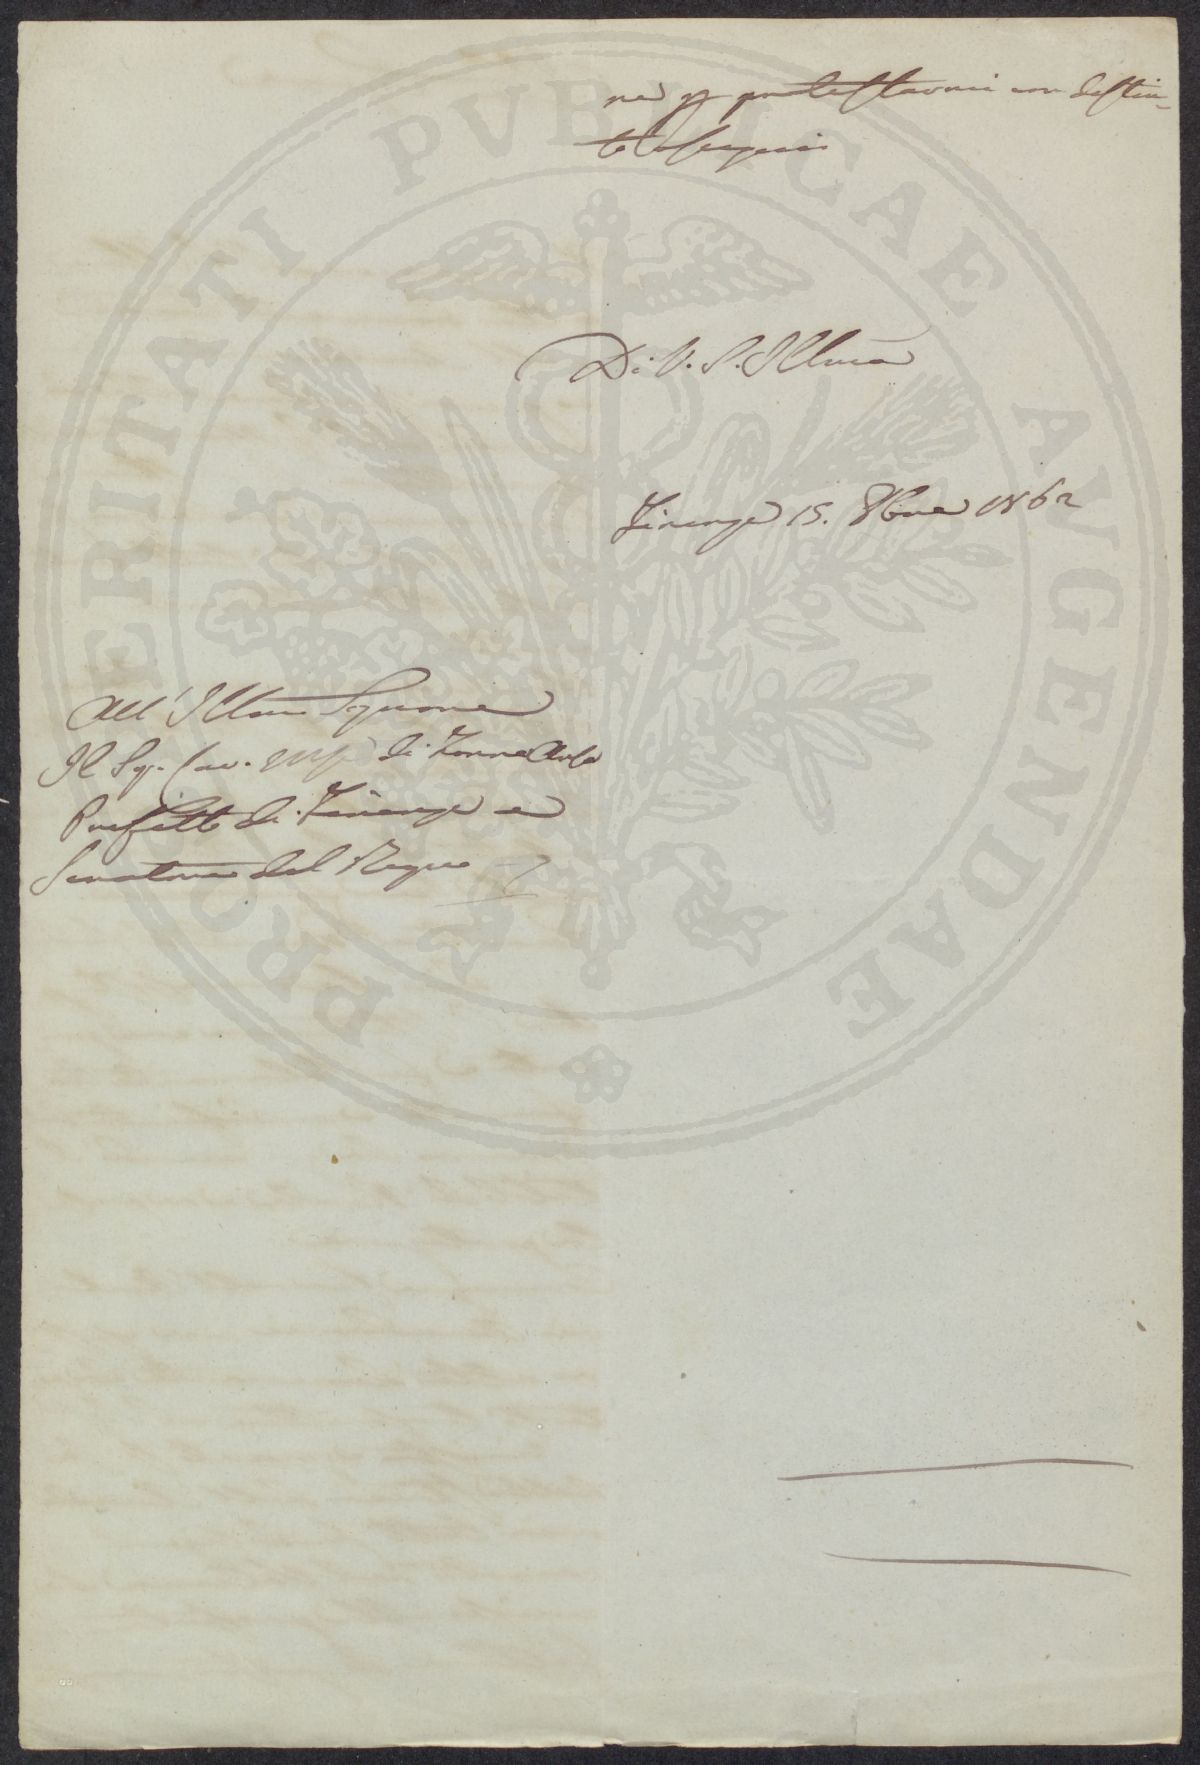 ne p protestarmi con distin-
to ossequio
Di V. S. Illma
Firenze 15. 8bre 1862
All' Illmo Signore
Il Sig. Cav. di Torre Arsa
Prefetto di Firenze e
Senatore del Regno
PROSPERITATI PVBLICAE AVGENDAE